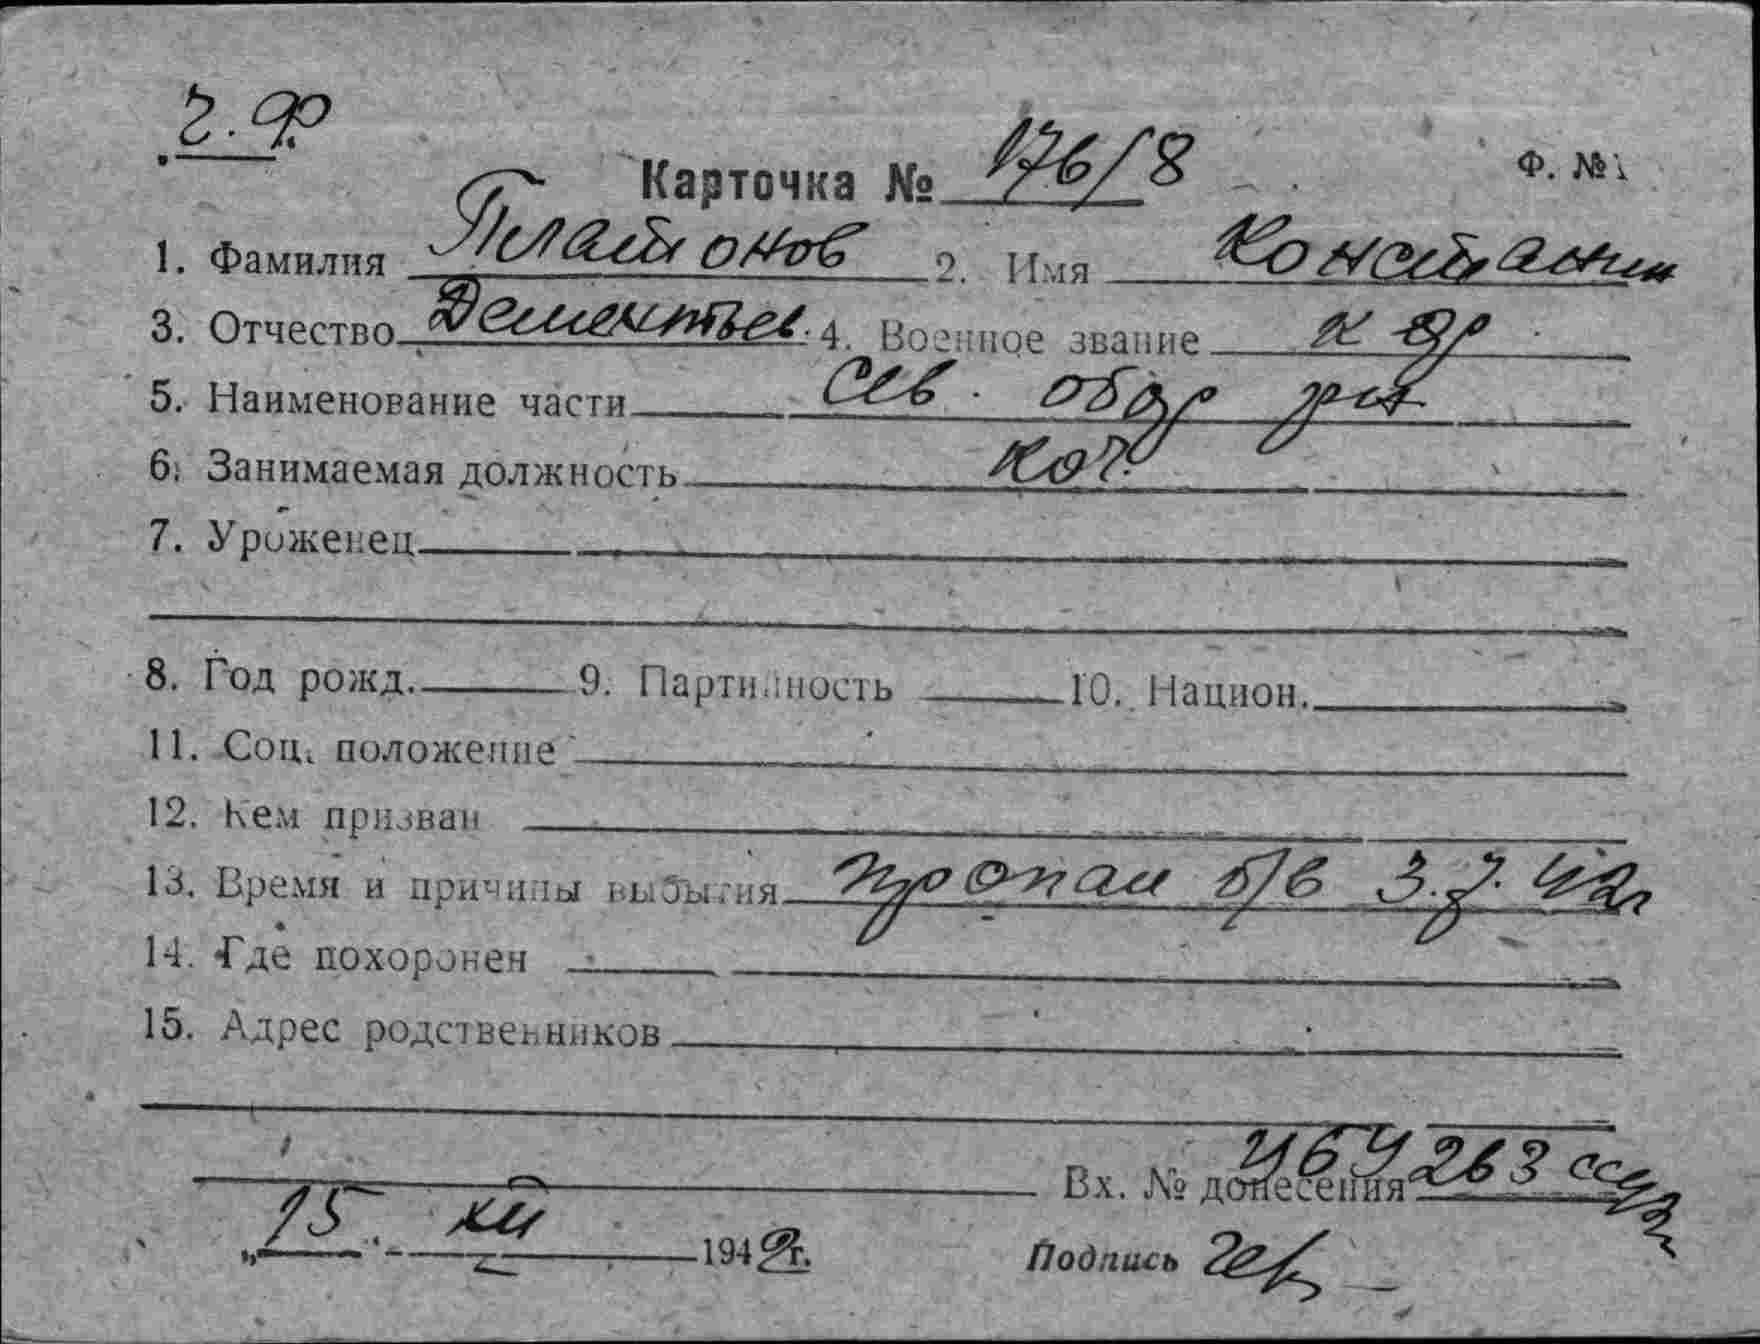 Ч.Ф.
Карточка № 176/8 Ф. №1
1. Фамилия Платонов 2. Имя Константин
3. Отчество Дементьев. 4. Военное звание к др
5. Наименование части Сев. обор
6. Занимаемая должность коч.
7. Уроженец
8. Год рожд. 9. Партийность 10. Национ.
11. Соц. положение
12. Кем призван
13. Время и причины выбытия пропал б/в 3.7.42г
14. Где похоронен
15. Адрес родственников
Вх. № донесения 263
„15" XII 1942г. Подпись